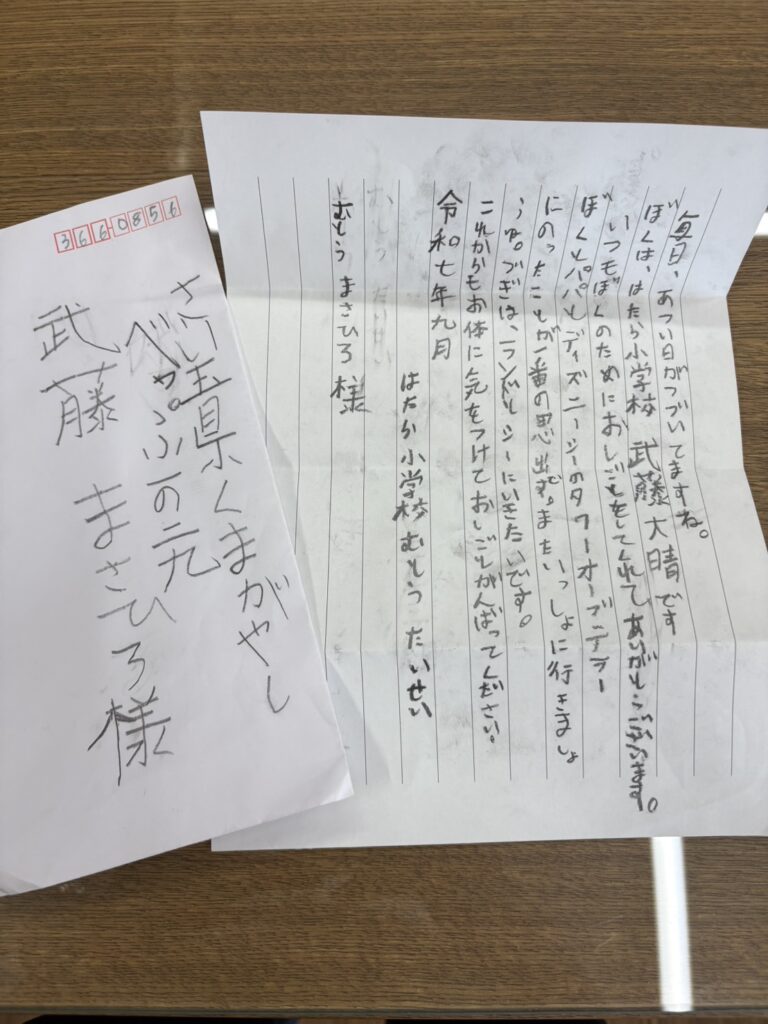 3660856
さい玉県くまがやし
べっぷ一の二九
武藤 まさひろ様
毎日、あつい日がつづいてますね。
ぼくは、はたら小学校 武藤大晴です
いつもぼくのためにおしごとをしてくれてありがとうございます。
ぼくとパパとディズニーシーのタワーオブデラー
にのったことが一番の思い出です。またいっしょに行きましょ
うね。つぎは、ランドとシーにいきたいです。
これからもお体に気をつけておしごとがんばってください。
令和七年九月
はたら小学校 むとう たいせい
むとう まさひろ 様